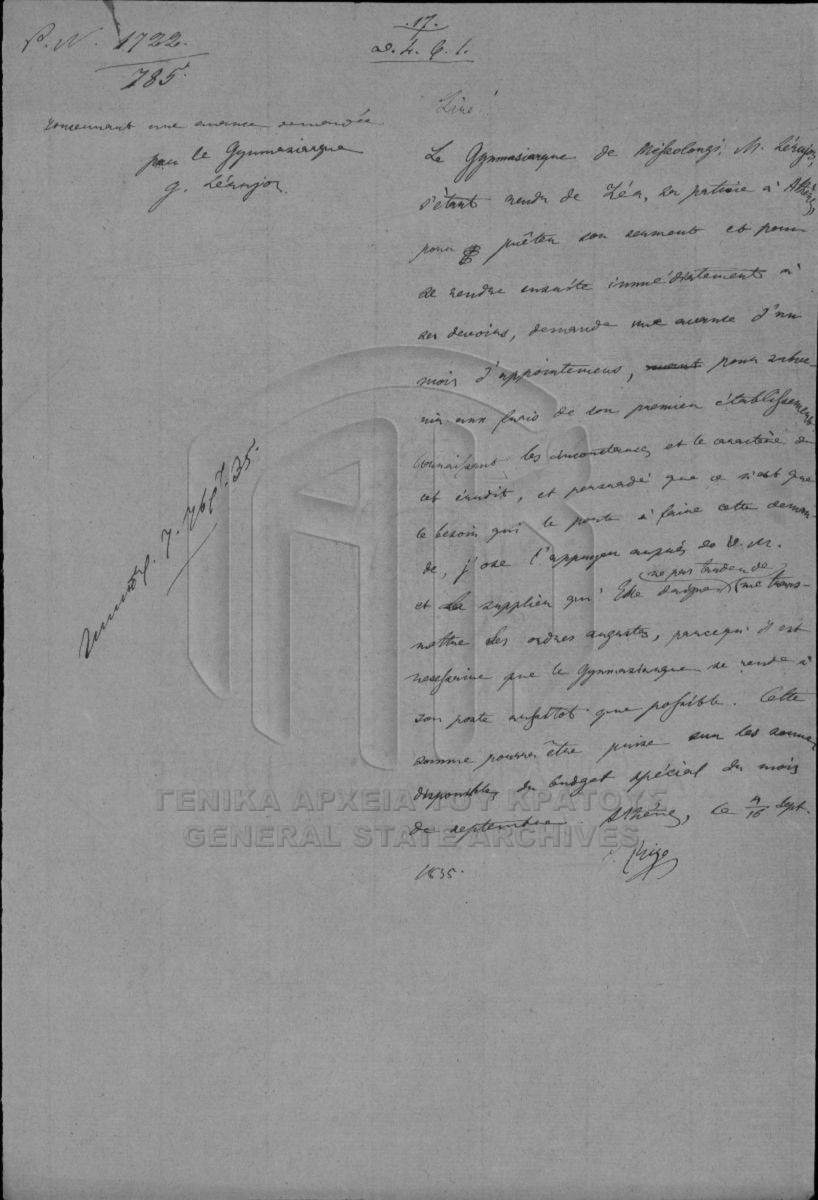 P. N. 1722.
785.
17.
a. 4. C. 1.
concernant une avance demandée
par le Gymnasiarque
g.
Sire!
Le Gymnasiarque de Missolongi, M.
s'étant rendu de Zéa, sa patrie à Athènes,
pour prêter son serment et pour
se rendre ensuite immédiatement à
ses devoirs, demande une avance d'un
mois d'appointemens, pour subve-
nir aux frais de son premier établissement.
Connaissant les circonstances et le caractère de
cet érudit, et persuadé que ce n'est que
le besoin qui le porte à faire cette deman-
de, j'ose l'appuyer auprès de V. M.
et La supplier qu'Elle daigne ne pas tarder de me trans-
mettre Ses ordres augustes, parcequ'il est
nécessaire que le Gymnasiarque se rende à
son poste aussitôt que possible. Cette
somme pourra être prise sur les sommes
disponibles du budget spécial du mois
de septembre. Athènes, le 4/16 Sept.
1835.
Rizo
7. 35.
ΓΕΝΙΚΑ ΑΡΧΕΙΑ ΤΟΥ ΚΡΑΤΟΥΣ
GENERAL STATE ARCHIVES